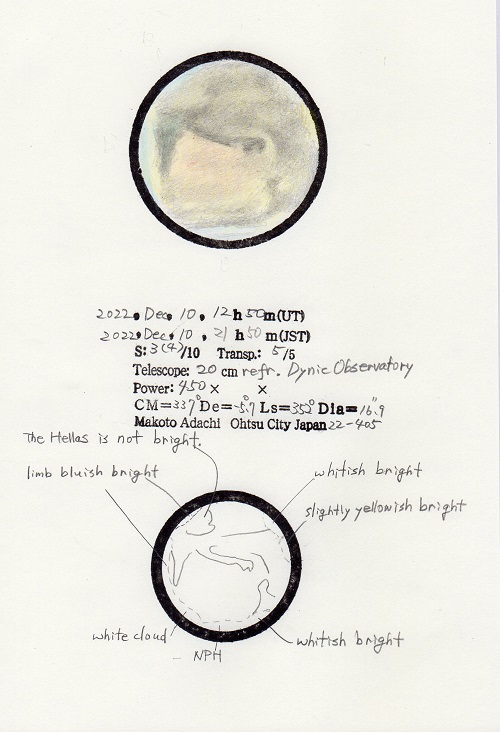 2022. Dec. 10. 12h50m(UT)
2022. Dec. 10. 21h50m(JST)
S: 3(4)/10 Transp.: 5/5
Telescope: 20 cm refr. Dynic Observatory
Power: 450 × ×
CM=337° De=-5.7 Ls=353° Dia=16".9
Makoto Adachi Ohtsu City Japan 22-405
The Hellas is not bright.
limb bluish bright
whitish bright
slightly yellowish bright
white cloud
whitish bright
NPH